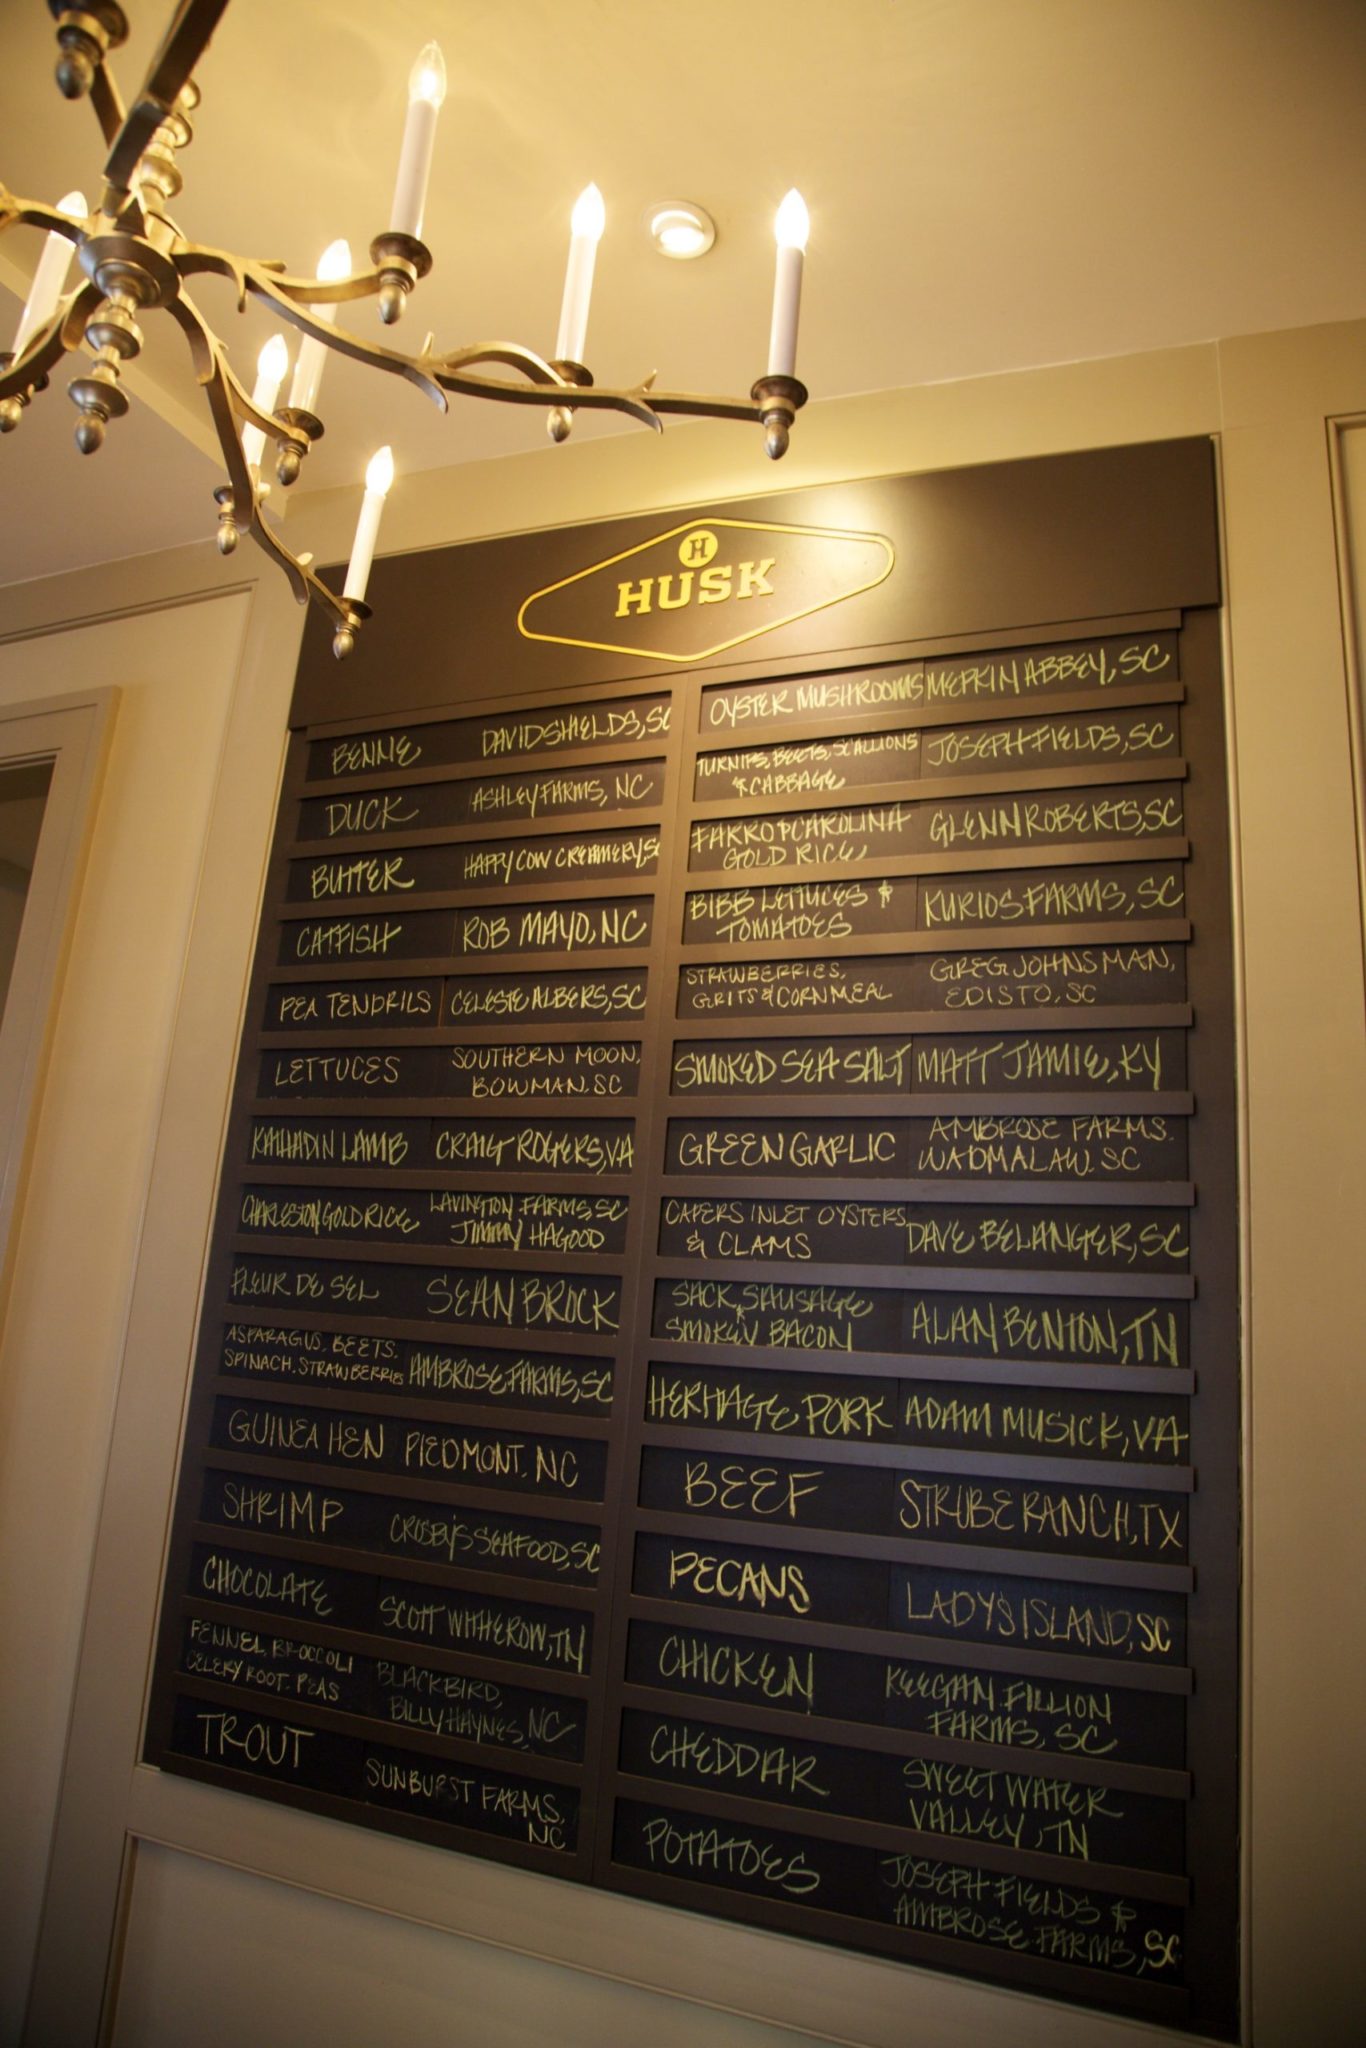 H
HUSK
BENNE DAVID SHIELDS, SC
DUCK ASHLEY FARMS, NC
BUTTER HAPPY COW CREAMERY, SC
CATFISH ROB MAYO, NC
PEA TENDRILS CELESTE ALBERS, SC
LETTUCES SOUTHERN MOON,
BOWMAN, SC
KATAHDIN LAMB CRAIG ROGERS, VA
CHARLESTON GOLD RICE LAVINGTON FARMS, SC
JIMMY HAGOOD
FLEUR DE SEL SEAN BROCK
ASPARAGUS, BEETS,
SPINACH, STRAWBERRIES AMBROSE FARMS, SC
GUINEA HEN PIEDMONT, NC
SHRIMP CROSBY'S SEAFOOD, SC
CHOCOLATE SCOTT WITHEROW, TN
FENNEL, BROCCOLI
CELERY ROOT, PEAS
BLACKBIRD,
BILLY HAYNES, NC
TROUT SUNBURST FARMS,
NC
OYSTER MUSHROOMS MEPKIN ABBEY, SC
TURNIPS, BEETS, SCALLIONS
& CABBAGE
JOSEPH FIELDS, SC
FARRO & CAROLINA
GOLD RICE
GLENN ROBERTS, SC
BIBB LETTUCES &
TOMATOES
KURIOS FARMS, SC
STRAWBERRIES,
GRITS & CORNMEAL
GREG JOHNSMAN,
EDISTO, SC
SMOKED SEA SALT MATT JAMIE, KY
GREEN GARLIC AMBROSE FARMS,
WADMALAW, SC
CAPERS INLET OYSTERS
& CLAMS
DAVE BELANGER, SC
SACK SAUSAGE
& SMOKEY BACON
ALAN BENTON, TN
HERITAGE PORK ADAM MUSICK, VA
BEEF STRUBE RANCH, TX
PECANS LADY'S ISLAND, SC
CHICKEN KEEGAN FILLION
FARMS, SC
CHEDDAR SWEET WATER
VALLEY, TN
POTATOES JOSEPH FIELDS &
AMBROSE FARMS, SC